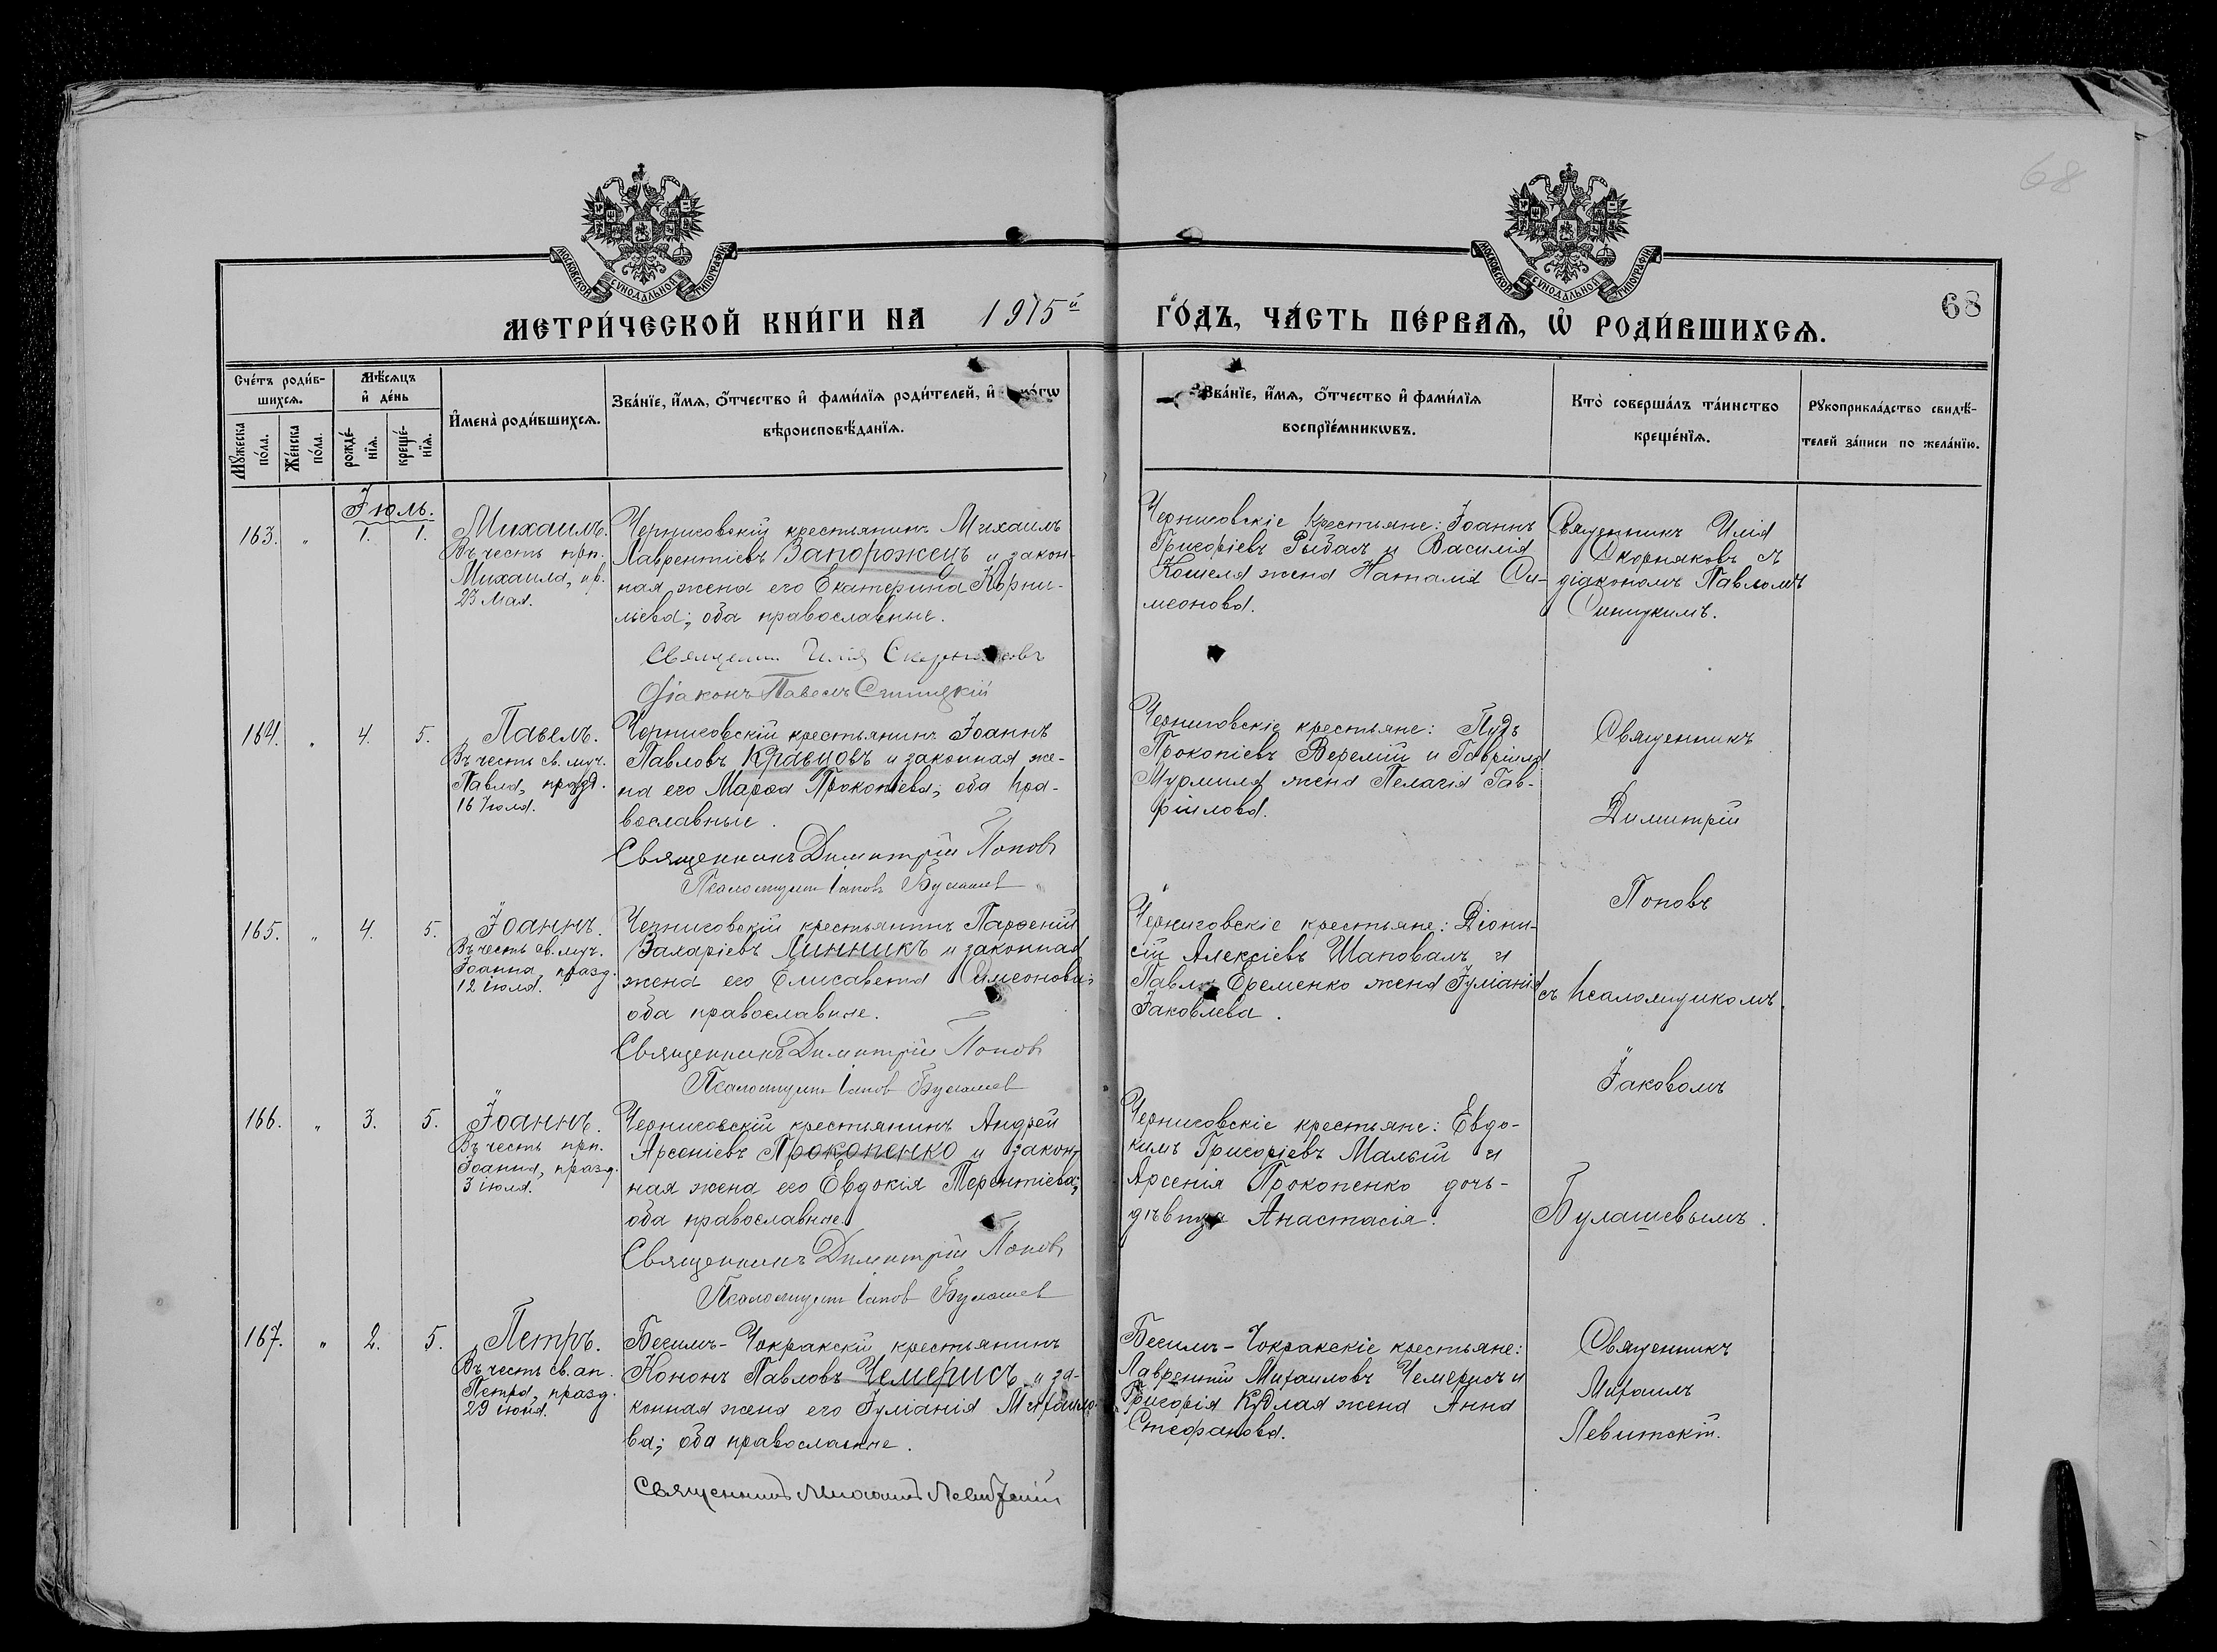 68
МОСКОВСКОЙ СУНОДАЛЬНОЙ ТИПОГРАФІИ
МОСКОВСКОЙ СУНОДАЛЬНОЙ ТИПОГРАФІИ
МЕТРИ́ЧЕСКОЙ КНИ́ГИ НА 1915й ГО́ДЪ, ЧА́СТЬ ПЕ́РВАѦ, Ѡ РОДИ́ВШИХСѦ.
68
Сче́тъ роди́в-
шихсѧ.
Мꙋ́жеска
по́ла.
Же́нска
по́ла.
Мѣ́сѧцъ
и҆ де́нь
рожде́-
нїѧ.
креще́-
нїѧ.
И҆мена̀ роди́вшихсѧ.
Зва́нїе, и҆́мѧ, ѻ҆́тчество и҆ фами́лїѧ роди́телей, и҆ ко́гѡ
вѣроисповѣ́данїѧ.
Зва́нїе, и҆́мѧ, ѻ҆́тчество и҆ фами́лїѧ
воспрїе́мникѡвъ.
Кто̀ соверша́лъ та́инство
креще́нїѧ.
Рꙋкоприкла́дство свидѣ́-
телей за́писи по жела́нію.
Іюль.
163. " 1. 1.
Михаилъ.
Въ честь прп.
Михаила, пр.
23 мая.
Черниговскій крестьянинъ Михаилъ
Лаврентіевъ Запорожецъ и закон-
ная жена его Екатерина Корни-
ліева; оба православные.
Священ. Илія Скорняковъ
Діаконъ Павелъ Синицкій
Черниговскіе крестьяне: Іоаннъ
Григоріевъ Рыбал и Василія
Кошеля жена Наталія Си-
меонова.
Священникъ Илія
Скорняковъ съ
діакономъ Павломъ
Синицкимъ.
164. " 4. 5.
Павелъ.
Въ честь св. муч.
Павла, празд.
16 іюля.
Черниговскій крестьянинъ Іоаннъ
Павловъ Кравцовъ и законная же-
на его Марѳа Прокопіева; оба пра-
вославные.
Священникъ Димитрій Поповъ
Псаломщикъ Іаковъ Булашев
Черниговскіе крестьяне: Пудъ
Прокопіевъ Веремій и Гавріила
Мурмиля жена Пелагія Гав-
ріилова.
Священникъ
Димитрій
Поповъ
165. " 4. 5.
Іоаннъ.
Въ честь св. муч.
Іоанна, празд.
12 іюля.
Черниговскій крестьянинъ Парѳеній
Захаріевъ Линникъ и законная
жена его Елисавета Симеонова;
оба православные.
Священникъ Димитрій Поповъ
Псаломщикъ Іаков Булашев
Черниговскіе крестьяне: Діони-
сій Алексіевъ Шаповалъ и
Павла Еременко жена Іуліанія
Іаковлева.
съ псаломщикомъ
Іаковомъ
166. " 3. 5.
Іоаннъ.
Въ честь прп.
Іоанна, празд.
3 іюля.
Черниговскій крестьянинъ Андрей
Арсеніевъ Прокопенко и закон-
ная жена его Евдокія Терентіева;
оба православные.
Священникъ Димитрій Поповъ
Псаломщикъ Іаков Булашев
Черниговскіе крестьяне: Евдо-
кимъ Григоріевъ Малый и
Арсенія Прокопенко дочь-
дѣвица Анастасія.
Булашевымъ.
167. " 2. 5.
Петръ.
Въ честь св. ап.
Петра, празд.
29 іюня.
Бегимъ-Чокракскій крестьянинъ
Кононъ Павловъ Чемерисъ и за-
конная жена его Іуліанія Михаило-
ва; оба православные.
Священникъ Михаилъ Левитскій
Бегимъ-Чокракскіе крестьяне:
Лаврентій Михаиловъ Чемерисъ и
Григорія жена Анна
Стефанова.
Священникъ
Михаилъ
Левитскій.